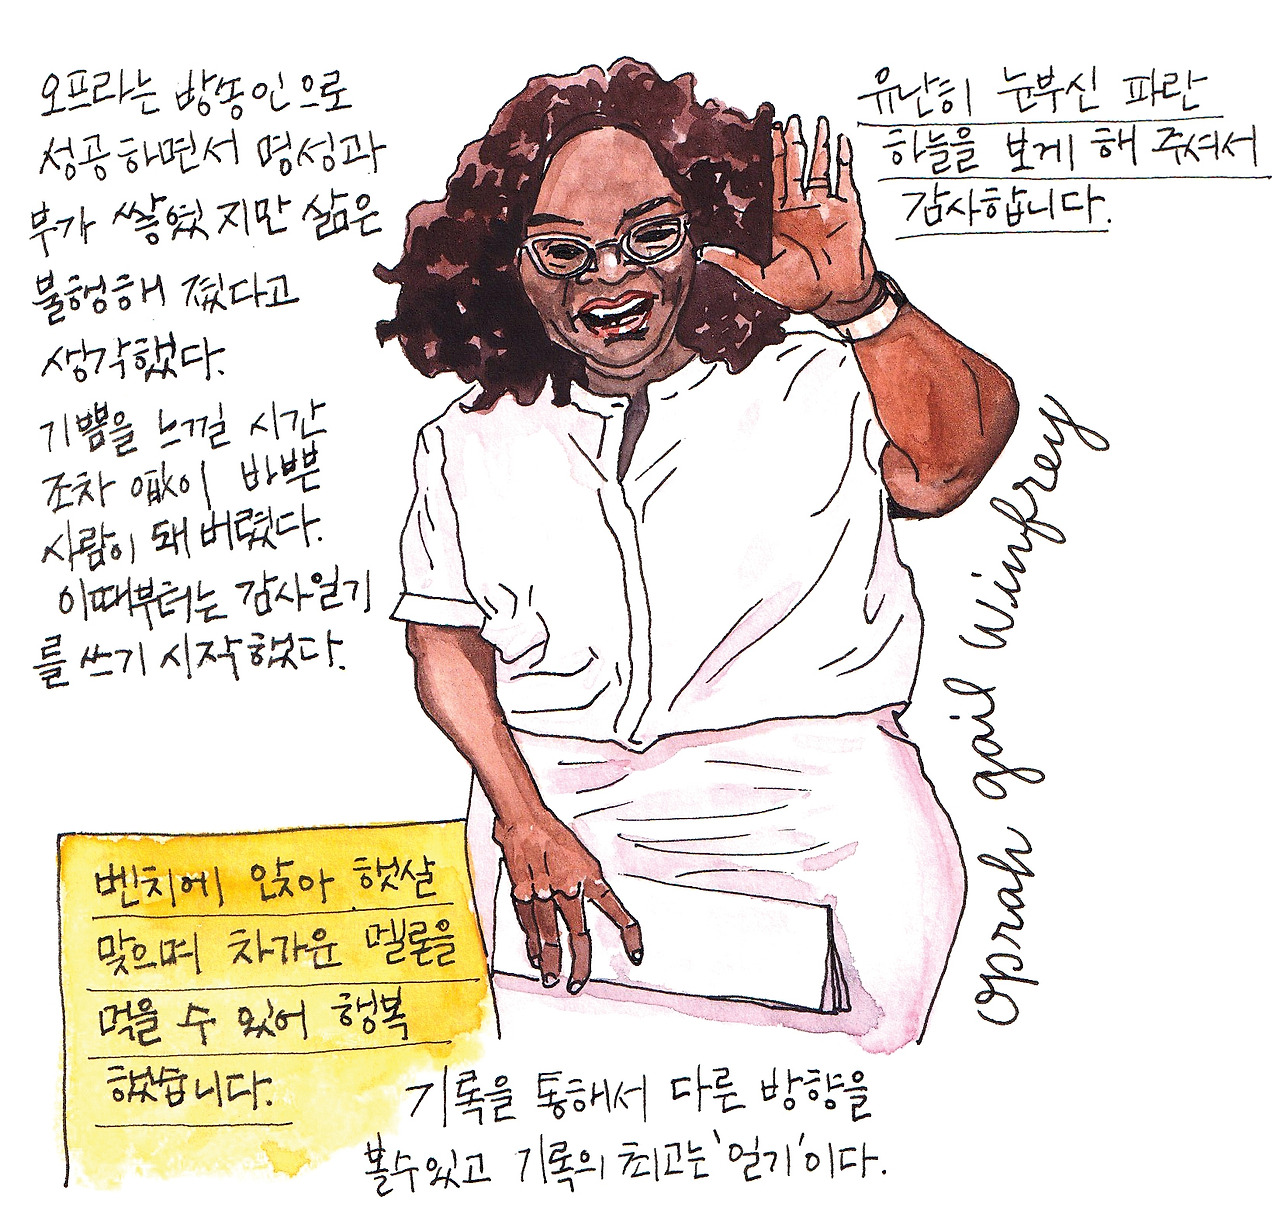 오프라는 방송인으로
성공하면서 명성과
부가 쌓였지만 삶은
불행해 졌다고
생각했다.
기쁨을 느낄 시간
조차 없이 바쁜
사람이 돼 버렸다.
이때부터는 감사일기
를 쓰기 시작했다.
유난히 눈부신 파란
하늘을 보게 해 주셔서
감사합니다.
oprah gail winfrey
벤치에 앉아 햇살
맞으며 차가운 멜론을
먹을 수 있어 행복
했습니다.
기록을 통해서 다른 방향을
볼수있고 기록의 최고는 '일기'이다.